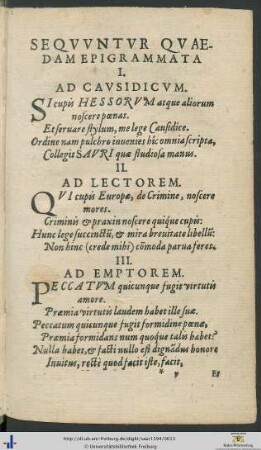 SEQVVNTVR QVAE-
DAM EPIGRAMMATA
I.
AD CAVSIDICVM.
SI cupis HESSORVM atque aliorum
noscere pœnas.
Et seruare stylum, me lege Causidice.
Ordine nam pulchro inuenies hic omnia scripta,
Collegit SAVRI quæ studiosa manus.
II.
AD LECTOREM.
QVI cupis Europæ, de Crimine, noscere
mores.
Criminis & praxin noscere quique cupis:
Hunc lege succinctũ, & mira breuitate libellũ:
Non hinc (crede mihi) cõmoda parua feres.
III.
AD EMPTOREM.
PECCATVM quicunque fugit virtutis
amore.
Præmia virtutis laudem habet ille suæ.
Peccatum quicunque fugit formidine pœnæ,
Præmia formidans num quoque talis habet?
Nulla habet, & facti nullo est dignãdus honore
Inuitus, rectè quod facit iste, facit,
Et